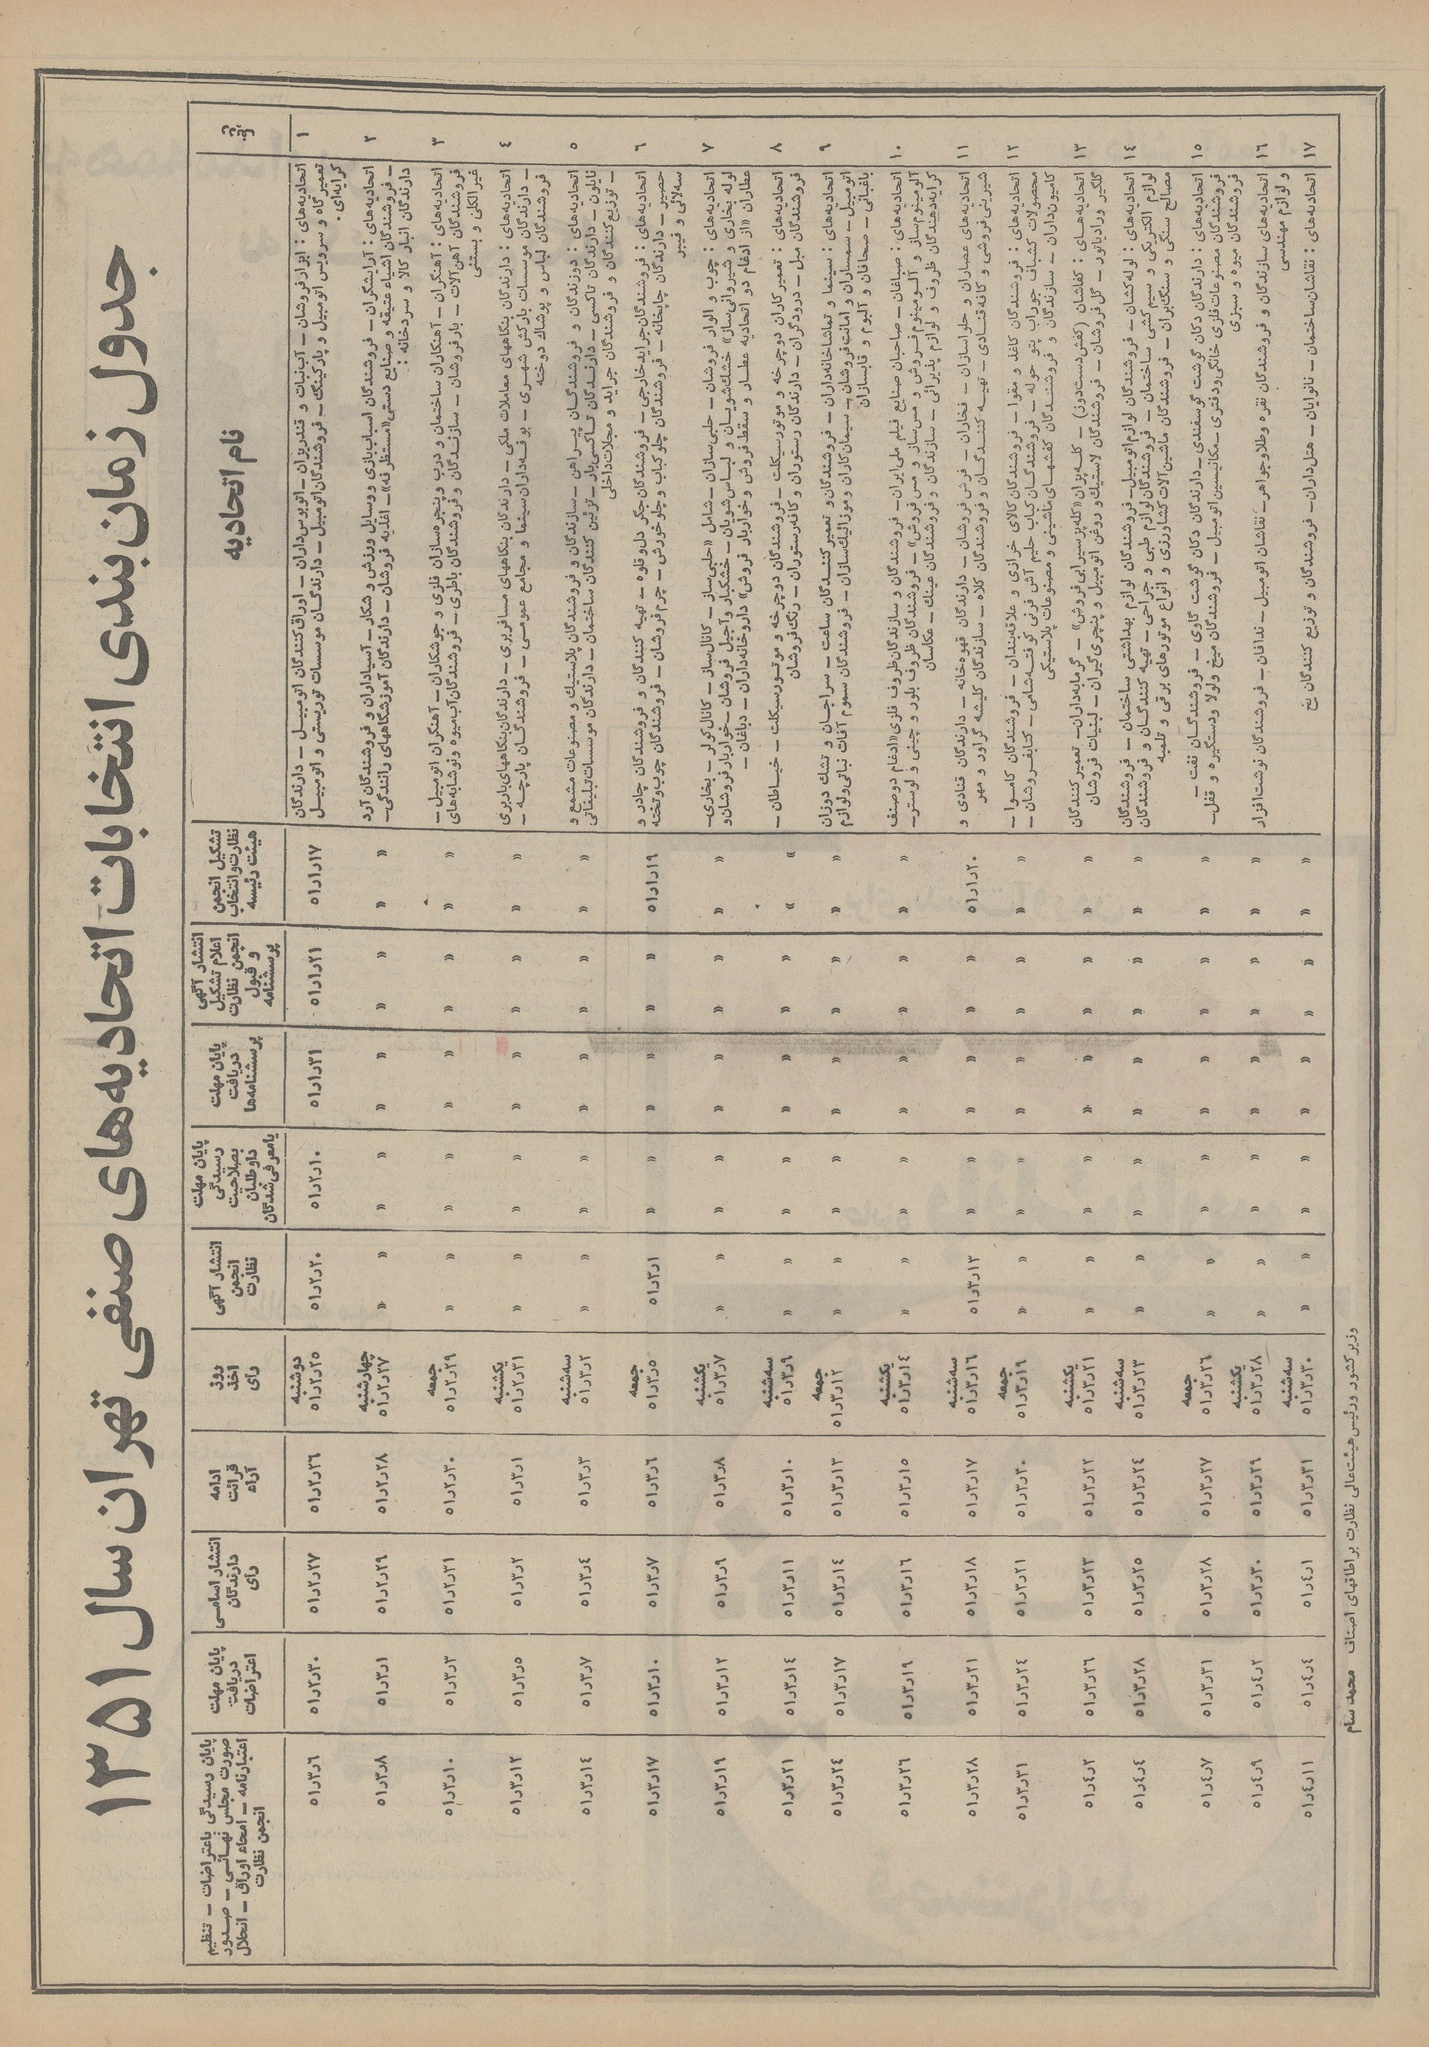 جدول زمان‌بندی انتخابات اتحادیه‌های صنفی تهران سال ۱۳۵۱
نام اتحادیه
تشکیل انجمن نظارت و انتخاب هیئت رئیسه
انتشار آگهی اعلام تشکیل انجمن نظارت و قبول پرسشنامه
پایان مهلت دریافت پرسشنامه‌ها
پایان مهلت رسیدگی بصلاحیت داوطلبان یا معرفی شدگان
انتشار آگهی انجمن نظارت
روز اخذ رای
ادامه قرائت آراء
انتشار اسامی دارندگان رای
پایان مهلت دریافت اعتراضات
پایان رسیدگی باعتراضات ــ تنظیم صورت مجلس نهائی ــ صدور اعتبارنامه ــ امحاء اوراق ــ انحلال انجمن نظارت
۱ اتحادیه‌های : ابزارفروشان ــ آب‌نبات و قندریزان ــ اتوبوس‌داران ــ اوراق‌کنندگان اتومبیل ــ دارندگان
تعمیرگاه و سرویس اتومبیل و پارکینگ ــ فروشندگان اتومبیل ــ دارندگان موسسات توریستی و اتومبیل
کرایه‌ای .
۵۱ر۱ر۱۷ ۵۱ر۱ر۲۱ ۵۱ر۱ر۳۱ ۵۱ر۲ر۱۰ ۵۱ر۲ر۲۰ دوشنبه ۵۱ر۲ر۲۵ ۵۱ر۲ر۲۶ ۵۱ر۲ر۲۷ ۵۱ر۲ر۳۰ ۵۱ر۳ر۶
۲ اتحادیه‌های : آرایشگران ــ فروشندگان اسباب‌بازی و وسایل ورزش و شکار ــ آسیاداران و فروشندگان آرد
ــ فروشندگان اشیاء عتیقه و صنایع دستی «مستظرفه» ــ اغذیه فروشان ــ دارندگان آموزشگاههای رانندگی ــ
دارندگان انبار کالا و سردخانه :
« « « « « چهارشنبه ۵۱ر۲ر۲۷ ۵۱ر۲ر۲۸ ۵۱ر۲ر۲۹ ۵۱ر۳ر۱ ۵۱ر۳ر۸
۳ اتحادیه‌های : آهنگران ــ آهنکاران ساختمان و درب و پنجره‌سازان فلزی و جوشکاران ــ آهنگران اتومبیل ــ
فروشندگان آهن‌آلات ــ بارفروشان ــ سازندگان و فروشندگان باطری ــ فروشندگان آب‌میوه و نوشابه‌های
غیرالکلی و بستنی
« « « « « جمعه ۵۱ر۲ر۲۹ ۵۱ر۲ر۳۰ ۵۱ر۲ر۳۱ ۵۱ر۳ر۳ ۵۱ر۳ر۱۰
۴ اتحادیه‌های : دارندگان بنگاههای معاملات ملکی ــ دارندگان بنگاههای مسافربری ــ دارندگان بنگاههای باربری
ــ دارندگان موسسات بارکش شهری ــ بوفه‌داران سینما و مجامع عمومی ــ فروشندگان پارچه ــ
فروشندگان لباس و پوشاك دوخته
« « « « « یکشنبه ۵۱ر۲ر۳۱ ۵۱ر۳ر۱ ۵۱ر۳ر۲ ۵۱ر۳ر۵ ۵۱ر۳ر۱۲
۵ اتحادیه‌های : دوزندگان و فروشندگان پیراهن ــ سازندگان و فروشندگان پلاستیك و مصنوعات مشمع و
نایلون ــ دارندگان تاکسی ــ دارندگان تاکسی‌بار ــ تزئین کنندگان ساختمان ــ دارندگان موسسات تبلیغاتی
ــ توزیع کنندگان و فروشندگان جراید و مجلات داخلی
« « « « « سه‌شنبه ۵۱ر۳ر۲ ۵۱ر۳ر۳ ۵۱ر۳ر۴ ۵۱ر۳ر۷ ۵۱ر۳ر۱۴
۶ اتحادیه‌های : فروشندگان جراید خارجی ــ فروشندگان جگر دل و قلوه ــ تهیه کنندگان و فروشندگان چادر و
حصیر ــ دارندگان چاپخانه ــ فروشندگان چلوکباب و چلوخورش ــ چرم‌فروشان ــ فروشندگان چوب و تخته
سه‌لائی و فیبر
۵۱ر۱ر۱۹ « « « ۵۱ر۳ر۱ جمعه ۵۱ر۳ر۵ ۵۱ر۳ر۶ ۵۱ر۳ر۷ ۵۱ر۳ر۱۰ ۵۱ر۳ر۱۷
۷ اتحادیه‌های : چوب و الوار فروشان ــ حلبی‌سازان ــ شامل «حلبی‌ساز ــ کانال‌ساز ــ کانال‌کولر ــ بخاری ــ
لوله بخاری و شیروانی‌ساز» خشك‌شویان و لباس‌شویان ــ خشکبار و آجیل فروشان ــ خواربارفروشان و
عطاران «از ادغام دو اتحادیه عطار و سقط فروش و خواربار فروش» داروخانه‌داران ــ دباغان ــ
« « « « « یکشنبه ۵۱ر۳ر۷ ۵۱ر۳ر۸ ۵۱ر۳ر۹ ۵۱ر۳ر۱۲ ۵۱ر۳ر۱۹
۸ اتحادیه‌های : تعمیرکاران دوچرخه و موتورسیکلت ــ فروشندگان دوچرخه و موتورسیکلت ــ خیاطان ــ
فروشندگان مبل ــ درودگران ــ دارندگان رستوران و کافه رستوران ــ رنگ‌فروشان
« « « « « سه‌شنبه ۵۱ر۳ر۹ ۵۱ر۳ر۱۰ ۵۱ر۳ر۱۱ ۵۱ر۳ر۱۴ ۵۱ر۳ر۲۱
۹ اتحادیه‌های : سینما و تماشاخانه‌داران ــ فروشندگان و تعمیر کنندگان ساعت سراجان و تشك دوزان
اتومبیل ــ سمساران و امانت‌فروشان ــ سیمان‌کاران و موزائیك‌سازان ــ فروشندگان سموم آفات نباتی و لوازم
باغبانی ــ صحافان و آلبوم و قاب‌سازان
« « « « « جمعه ۵۱ر۳ر۱۲ ۵۱ر۳ر۱۳ ۵۱ر۳ر۱۴ ۵۱ر۳ر۱۷ ۵۱ر۳ر۲۴
۱۰ اتحادیه‌های : صباغان ــ صاحبان صنایع فیلم ملی ایران ــ فروشندگان و سازندگان ظروف فلزی «ادغام دو صنف
آلومینوم‌ساز و آلومینوم‌فروش و مس‌ساز و مس فروش» ــ فروشندگان ظروف بلور و چینی و لوستر ــ
کرایه‌دهندگان ظروف و لوازم پذیرائی ــ سازندگان و فروشندگان عینك ــ عکاسان
« « « « « یکشنبه ۵۱ر۳ر۱۴ ۵۱ر۳ر۱۵ ۵۱ر۳ر۱۶ ۵۱ر۳ر۱۹ ۵۱ر۳ر۲۶
۱۱ اتحادیه‌های عصاران و حلواسازان ــ فخاران ــ فرش فروشان ــ دارندگان قهوه‌خانه ــ دارندگان قنادی و
شیرینی‌فروشی و کافه قنادی ــ تهیه کنندگان و فروشندگان کلاه ــ سازندگان کلیشه گراور و مهر
۵۱ر۱ر۲۰ « « « ۵۱ر۳ر۱۳ سه‌شنبه ۵۱ر۳ر۱۶ ۵۱ر۳ر۱۷ ۵۱ر۳ر۱۸ ۵۱ر۳ر۲۱ ۵۱ر۳ر۲۸
۱۲ اتحادیه‌های : فروشندگان کاغذ و مقوا ــ فروشندگان کالای خرازی و علاقه‌بندان ــ فروشندگان کاموا ــ
محصولات کشباف جوراب پتو حوله ــ فروشندگان کباب حلیم آش فرنی کوفته شامی ــ کتابفروشان ــ
کامیون‌داران ــ سازندگان و فروشندگان کفشهای ماشینی و مصنوعات پلاستیکی
« « « « « جمعه ۵۱ر۳ر۱۹ ۵۱ر۳ر۲۰ ۵۱ر۳ر۲۱ ۵۱ر۳ر۲۴ ۵۱ر۳ر۳۱
۱۳ اتحادیه‌های : کفاشان (کفش دست‌دوز) ــ کله‌پزان «کله‌پز سیرابی فروش» ــ گرمابه‌داران ــ تعمیر کنندگان
گلگیر و رادیاتور ــ گل فروشان ــ فروشندگان لاستیك و روغن اتومبیل و پنچری‌گیران ــ لبنیات فروشان
« « « « « یکشنبه ۵۱ر۳ر۲۱ ۵۱ر۳ر۲۲ ۵۱ر۳ر۲۳ ۵۱ر۳ر۲۶ ۵۱ر۴ر۲
۱۴ اتحادیه‌های : لوله‌کشان ــ فروشندگان لوازم اتومبیل ــ فروشندگان لوازم بهداشتی ساختمان ــ فروشندگان
لوازم الکتریکی و سیم کشی ساختمان ــ فروشندگان لوازم طبی و جراحی ــ تهیه کنندگان و فروشندگان
مصالح سنگی و سنگ‌بران ــ فروشندگان ماشین‌آلات کشاورزی و انواع موتورهای برقی و تلمبه
« « « « « سه‌شنبه ۵۱ر۳ر۲۳ ۵۱ر۳ر۲۴ ۵۱ر۳ر۲۵ ۵۱ر۳ر۲۸ ۵۱ر۴ر۴
۱۵ اتحادیه‌های : دارندگان دکان گوشت گوسفندی ــ دارندگان دکان گوشت گاوی ــ فروشندگان نفت ــ
فروشندگان مصنوعات فلزی خانگی و دفتری ــ مکانیسین اتومبیل ــ فروشندگان میخ و لولا و دستگیره و قفل ــ
فروشندگان میوه و سبزی
« « « « « جمعه ۵۱ر۳ر۲۶ ۵۱ر۳ر۲۷ ۵۱ر۳ر۲۸ ۵۱ر۳ر۳۱ ۵۱ر۴ر۷
۱۶ اتحادیه‌های سازندگان و فروشندگان نقره و طلا و جواهر ــ نقاشان اتومبیل ــ ندافان ــ فروشندگان نوشت‌افزار
و لوازم مهندسی
« « « « « یکشنبه ۵۱ر۳ر۲۸ ۵۱ر۳ر۲۹ ۵۱ر۳ر۳۰ ۵۱ر۴ر۲ ۵۱ر۴ر۹
۱۷ اتحادیه‌های : نقاشان ساختمان ــ نانوایان ــ هتل‌داران ــ فروشندگان و توزیع کنندگان یخ
« « « « « سه‌شنبه ۵۱ر۳ر۳۰ ۵۱ر۳ر۳۱ ۵۱ر۴ر۱ ۵۱ر۴ر۴ ۵۱ر۴ر۱۱
وزیر کشور و رئیس هیئت عالی نظارت بر اطاقهای اصناف محمد سام